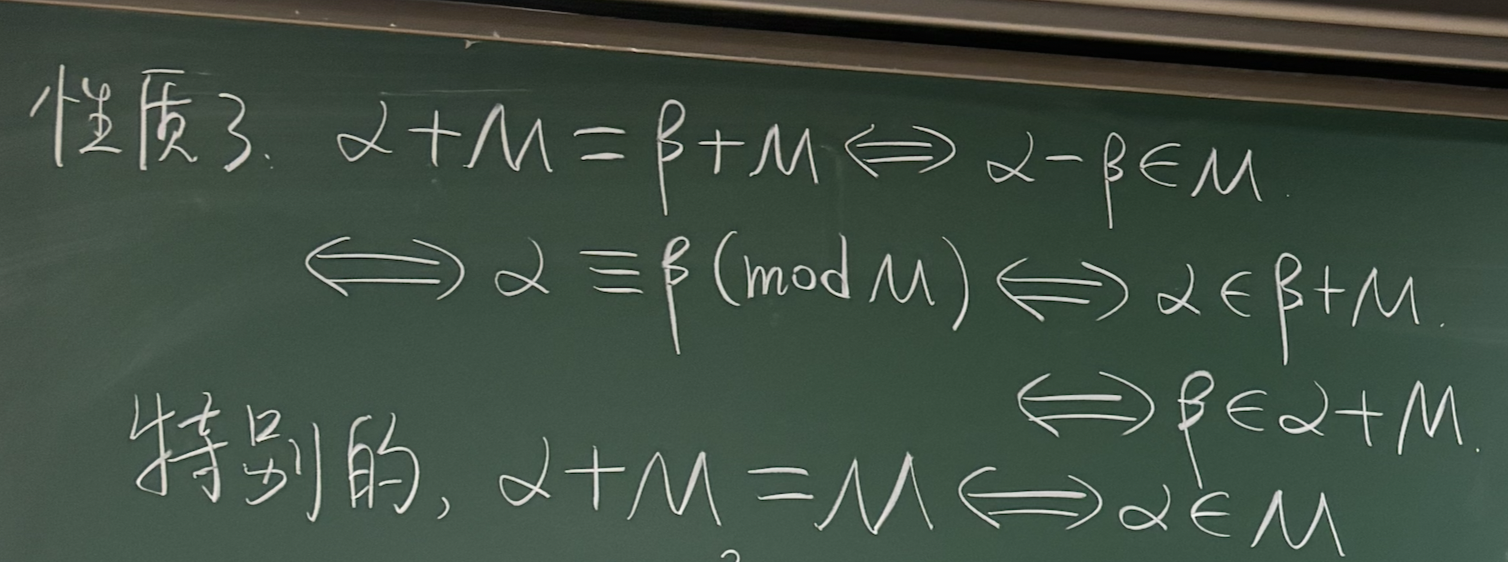 性质3. α+M=β+M⟺α-β∈M.
⟺α≡β(mod M)⟺α∈β+M.
⟺β∈α+M.
特别的, α+M=M⟺α∈M